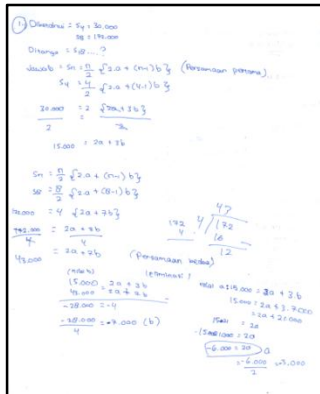 1. Diketahui = S4 = 30.000
S8 = 172.000
Ditanya = S8 ...?
Jawab = Sn = n/2 {2.a + (n-1) b} (Persamaan pertama)
S4 = 4/2 {2.a + (4-1) b}
30.000 / 2 = 2 {2a + 3b} / 2
15.000 = 2a + 3b
Sn = n/2 {2.a + (n-1) b}
S8 = 8/2 {2.a + (8-1) b}
= 4 {2a + 7b}
= 2a + 7b
43.000 (Persamaan kedua)
47
4 / 172
16
12
172
4
Eliminasi
15.000 = 2a + 3b
43.000 = 2a + 7b
-28.000 = -4
-28.000 / 4 = -7.000 (b)
15.000 = 2a + 3b
15.000 = 2a + 3.7.000
= 2a + 21.000
= 2a
= 2a
-6.000 = 2a
= -6.000 / 2 = -3.000